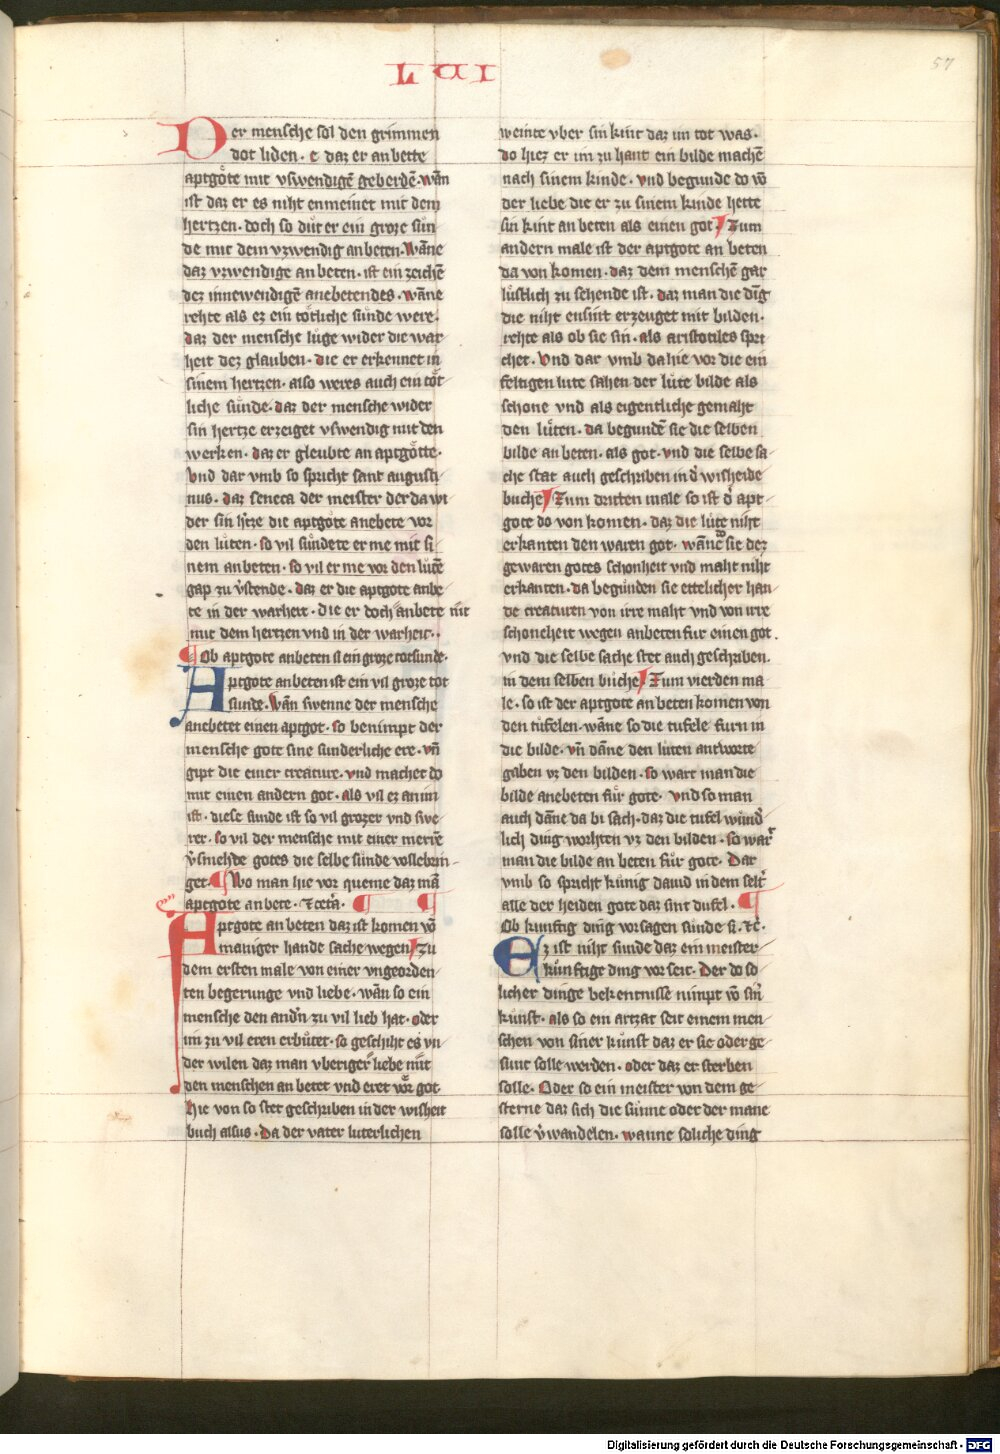 LVII
57
Der mensche sol den grimmen
dot liden · e daz er an bette
aptgöte mit vswendigē geberdē · wān
ist daz er es niht enmeinet mit dem
hertzen · doch so důt er ein groze sůn
de mit dem vzwendig an beten · Wāne
daz vzwendige an beten · ist ein zeichē
dez innewendigē anebetendes · wāne
rehte als ez ein tötliche sůnde were ·
daz der mensche lůge wider die war
heit dez glauben · die er erkennet in
sinem hertzen · also weres auch ein töt
liche sůnde · daz der mensche wider
sin hertze erzeiget vswendig mit den
werken · daz er gleubte an aptgötte ·
Vnd dar vmb so spricht sant augusti
nus · daz seneca der meister der da wi
der sin htze die aptgöte anebete vor
den lůten · so vil sůndete er me mit si
nem anbeten · so vil er me vor den lůtē
gap zu v̓stende · daz er die aptgote anbe
te in der warheit · die er doch anbete nit
mit dem hertzen vnd in der warheit ·
Ob aptgote anbeten si ein groze totsunde ·
Aptgote anbeten ist ein vil groze tot
sůnde · Wān swenne der mensche
anebetet einen aptgot · so benimpt der
mensche gote sine sunderliche ere · vn̄
gipt die einer creature · vnd machet do
mit einen andern got · als vil ez an im
ist · diese sunde ist so vil grozer vnd swe
rer · so vil der mensche mit einer merrē
v̓smehde gotes die selbe sůnde vollebrin
get · Wo man hie vor queme daz mā
aptgote anbete · &cetā ·
Aptgote an beten daz ist komen vō
maniger hande sache wegen / zu
dem ersten male von einer vngeorden
ten begerunge vnd liebe · wān so ein
mensche den andn̓ zu vil lieb hat · oder
im zu vil eren erbůtet · so geschiht es vn
der wilen daz man vberiger liebe mit
den menschen an betet vnd eret vor got
hie von so stet geschriben in der wisheit
buch alsus · Da der vater luterlichen
weinte vber sin kint daz im tot was ·
do hiez er im zu hant ein bilde machē
nach sinem kinde · vnd begunde do vō
der liebe die er zu sinem kinde hette
sin kint an beten als einen got / Zum
andern male ist der aptgote an beten
da von komen · daz dem menschē gar
lůstlich zu sehende ist · daz man die dīg
die niht ensint erzeuget mit bilden ·
rehte als ob sie sin · als aristotiles spri
chet · Vnd dar vmb da hie vor die ein
feltigen lute sahen der lůte bilde als
schone vnd als eigentliche gemaht
den lůten · da begundē sie die selben
bilde an beten · als got · vnd die selbe sa
che stat auch geschriben in d̓ wisheide
buche / Zum dritten male so ist d̓ apt
gote do von komen · daz die lůte niht
erkanten den waren got · sie dez
gewaren gotes schonheit vnd maht niht
erkanten · da begůnden sie ettelicher han
de creaturen von irre maht vnd von irre
schoneheit wegen anbeten fur einen got ·
vnd die selbe sache stet auch geschriben
in dem selben buche / Zum vierden ma
le · so ist der aptgote an beten komen von
den tůfelen · wāne so die tufele fůrn in
die bilde · vn̄ dāne den lůten antworte
gaben vz den bilden · so wart man die
bilde anebeten fůr gote · vnd so man
auch dāne da bi sach · daz die tufel wund̓
lich ding worhten vz den bilden · so wart
man die bilde an beten fůr gote · Dar
vmb so spricht kůnig dauid in dem selt̓
alle der heiden gote daz sint dufel ·
Ob kunftig ding vorsagen sůnde si · &c̄ ·
Ez ist niht sunde daz ein meister
kůnftige ding vor seit · Der do so
licher dinge bekentnisse nimpt vō sin̓
kůnst · als so ein artzat seit einem men
schen von siner kůnst daz er sie oder ge
sunt solle werden · oder daz er sterben
solle · Oder so ein meister von dem ge
sterne daz sich die sůnne oder der mane
solle v̓wandelen · wanne soliche ding
Digitalisierung gefördert durch die Deutsche Forschungsgemeinschaft - DFG